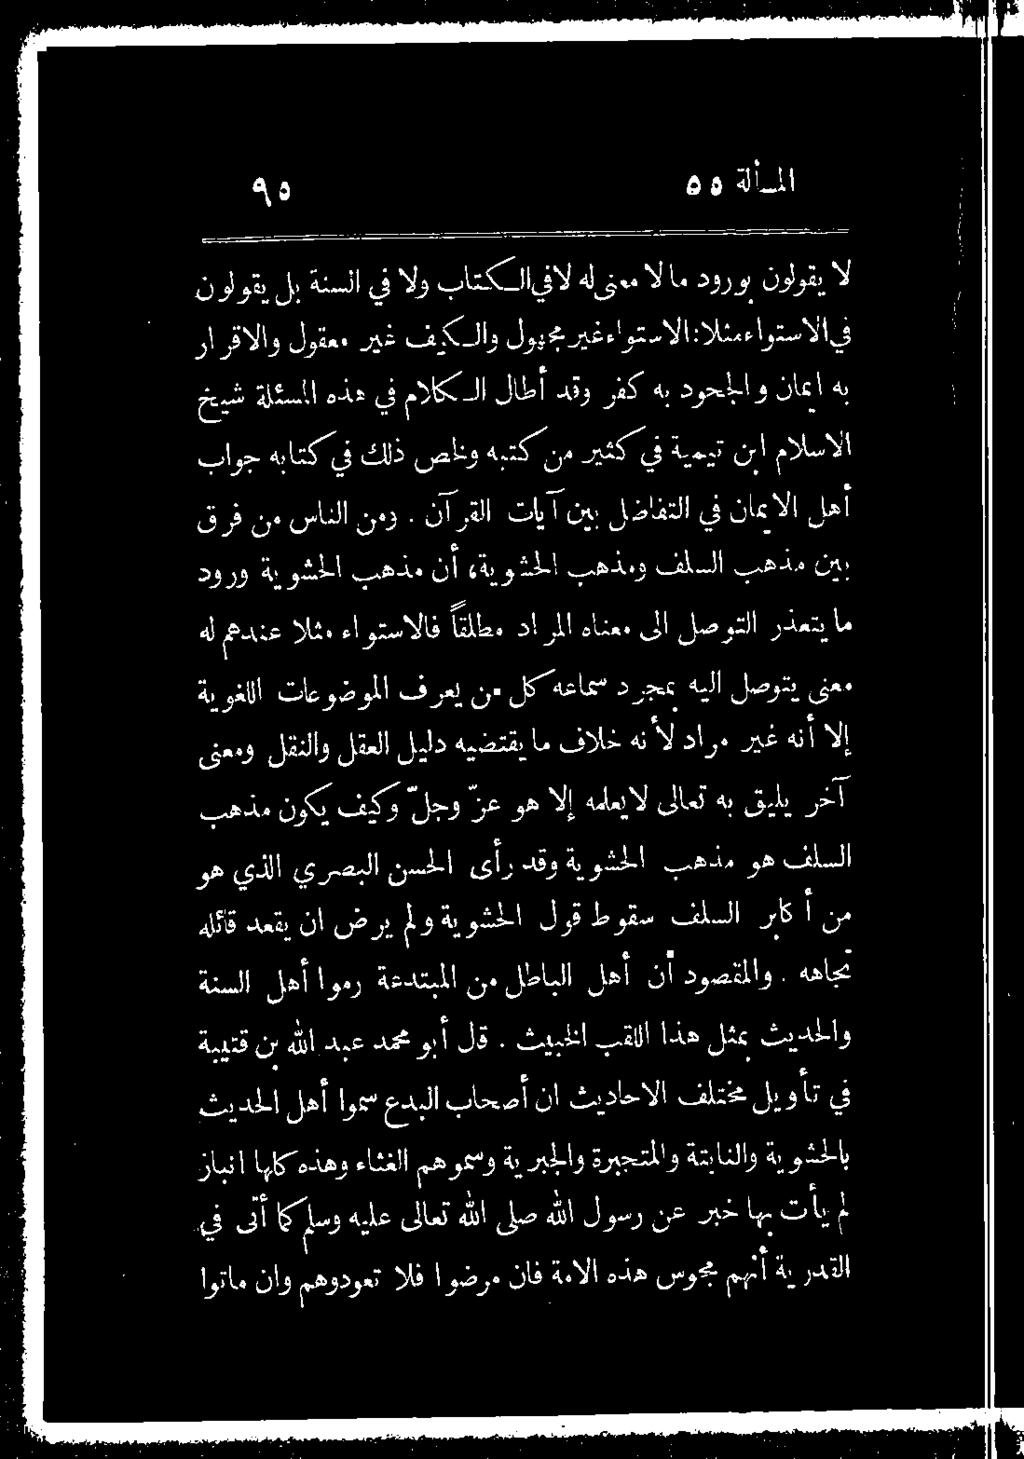 المسألة ٥٥ ٩٥
لا يقولون بورود مالا معنى له لا في الكتاب ولا في السنة بل يقولون
في الاستواء مثلا: الاستواء غير مجهول والكيف غير معقول والاقرار
به ايمان والجحود به كفر وقد أطال الكلام في هذه المسئلة شيخ
الاسلام ابن تيمية في كثير من كتبه ولخص ذلك في كتابه جواب
أهل الايمان في التفاضل بين آيات القرآن . ومن الناس من فرق
بين مذهب السلف ومذهب الحشوية، أن مذهب الحشوية ورود
ما يتعذر التوصل الى معناه المراد مطلقاً فالاستواء مثلا عندهم له
معنى يتوصل اليه بمجرد سماعه كل من يعرف الموضوعات اللغوية
إلا أنه غير مراد لأنه خلاف ما يقتضيه دليل العقل والنقل ومعنى
آخر يليق به تعالى لا يعلمه إلا هو عزّ وجلّ وكيف يكون مذهب
السلف هو مذهب الحشوية وقد رأى الحسن البصري الذي هو
من أكابر السلف سقوط قول الحشوية ولم يرض ان يقعد قائله
تجاهه . والمقصود أن أهل الباطل من المبتدعة رموا أهل السنة
والحديث بمثل هذا اللقب الخبيث . قل أبو محمد عبد الله بن قتيبة
في تأويل مختلف الاحاديث ان أصحاب البدع سموا أهل الحديث
بالحشوية والنابتة والمتجبرة والجبرية وسموهم الغثاء وهذه كلها انباز
لم يأت بها خبر عن رسول الله صلى الله تعالى عليه وسلم كما أتى في
القدرية أنهم مجوس هذه الامة فان مرضوا فلا تعودوهم وان ماتوا